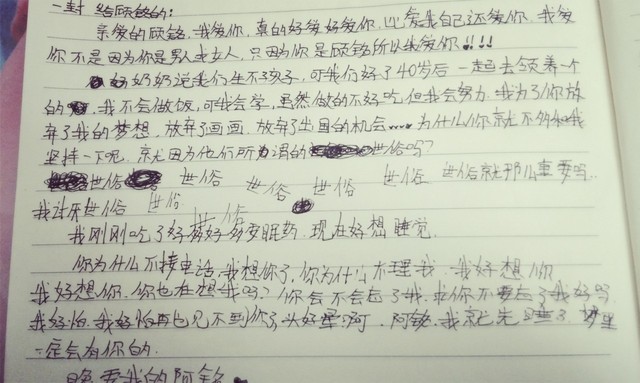 一封 给顾铭的:
亲爱的顾铭,我爱你,真的好爱好爱你,比爱我自己还爱你,我爱
你不是因为你是男人或女人,只因为你是顾铭所以我爱你!!!!
奶奶说我们生不了孩子,可我们好了40岁后一起去领养一个
的,我不会做饭,可我会学,虽然做的不好吃但我会努力,我为了你放
弃了我的梦想,放弃了画画,放弃了出国的机会……为什么你就不能和我
坚持一下呢,就因为他们所谓的世俗吗?
世俗 世俗 世俗 世俗 世俗 世俗就那么重要吗..
我讨厌世俗 世俗 世俗
我刚刚吃了好多好多安眠药,现在好想睡觉.
你为什么不接电话,我想你了,你为什么不理我,我好想你
我好想你,你也在想我吗?你会不会忘了我,求你不要忘了我好吗
我好怕,我好怕再也见不到你了,头好晕啊,阿铭,我就先睡了,梦里
一定会有你的.
晚安我的阿铭